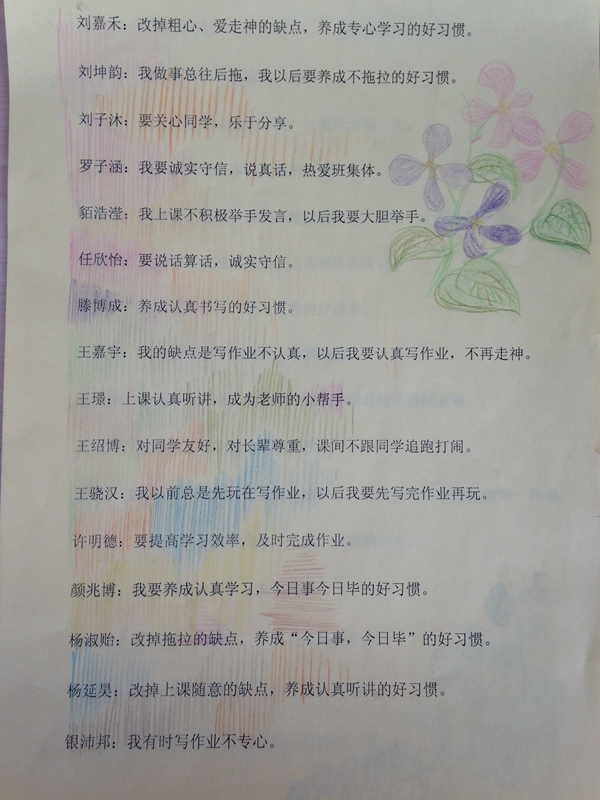 刘嘉禾：改掉粗心、爱走神的缺点，养成专心学习的好习惯。
刘坤韵：我做事总往后拖，我以后要养成不拖拉的好习惯。
刘子沐：要关心同学，乐于分享。
罗子涵：我要诚实守信，说真话，热爱班集体。
貊浩滢：我上课不积极举手发言，以后我要大胆举手。
任欣怡：要说话算话，诚实守信。
滕博成：养成认真书写的好习惯。
王嘉宇：我的缺点是写作业不认真，以后我要认真写作业，不再走神。
王璟：上课认真听讲，成为老师的小帮手。
王绍博：对同学友好，对长辈尊重，课间不跟同学追跑打闹。
王骁汉：我以前总是先玩在写作业，以后我要先写完作业再玩。
许明德：要提高学习效率，及时完成作业。
颜兆博：我要养成认真学习，今日事今日毕的好习惯。
杨淑贻：改掉拖拉的缺点，养成“今日事，今日毕”的好习惯。
杨延昊：改掉上课随意的缺点，养成认真听讲的好习惯。
银沛邦：我有时写作业不专心。